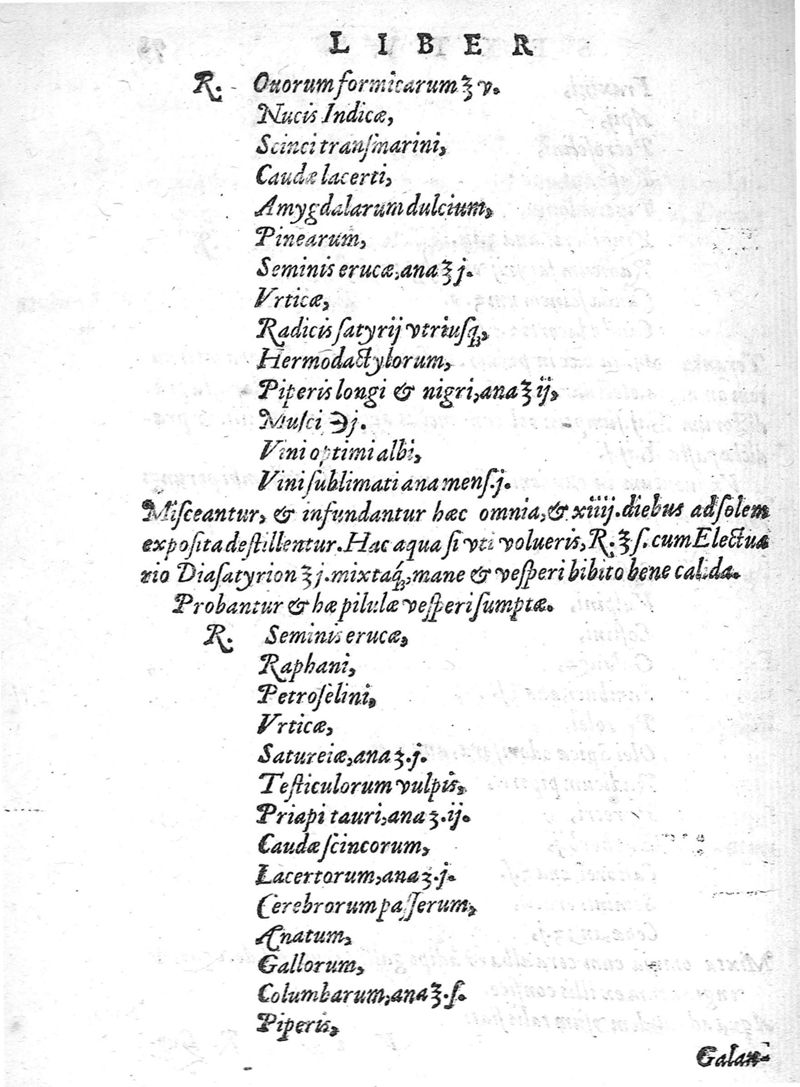 LIBER
℞. Ouorum formicarum ʒ v.
Nucis Indicæ,
Scinci tranſmarini,
Caudæ lacerti,
Amygdalarum dulcium,
Pinearum,
Seminis erucæ, ana ʒ j.
Vrticæ,
Radicis ſatyrij vtriuſq́;,
Hermodactylorum,
Piperis longi & nigri, ana ʒ ij,
Muſci ℈j.
Vini optimi albi,
Vini ſublimati ana menſ. j.
Miſceantur, & infundantur hæc omnia, & xiiij. diebus ad ſolem
expoſita deſtillentur. Hac aqua ſi vti volueris, ℞. ʒ ſ. cum Electua
rio Diaſatyrion ʒ j. mixtaq́;, mane & veſperi bibito bene calida.
Probantur & hæ pilulæ veſperi ſumptæ.
℞. Seminis erucæ,
Raphani,
Petroſelini,
Vrticæ,
Satureiæ, ana ʒ. j.
Teſticulorum vulpis,
Priapi tauri, ana ʒ. ij.
Caudæ ſcincorum,
Lacertorum, ana ʒ. j.
Cerebrorum paſſerum,
Ænatum,
Gallorum,
Columbarum, ana ʒ. ſ.
Piperis,
Galan-